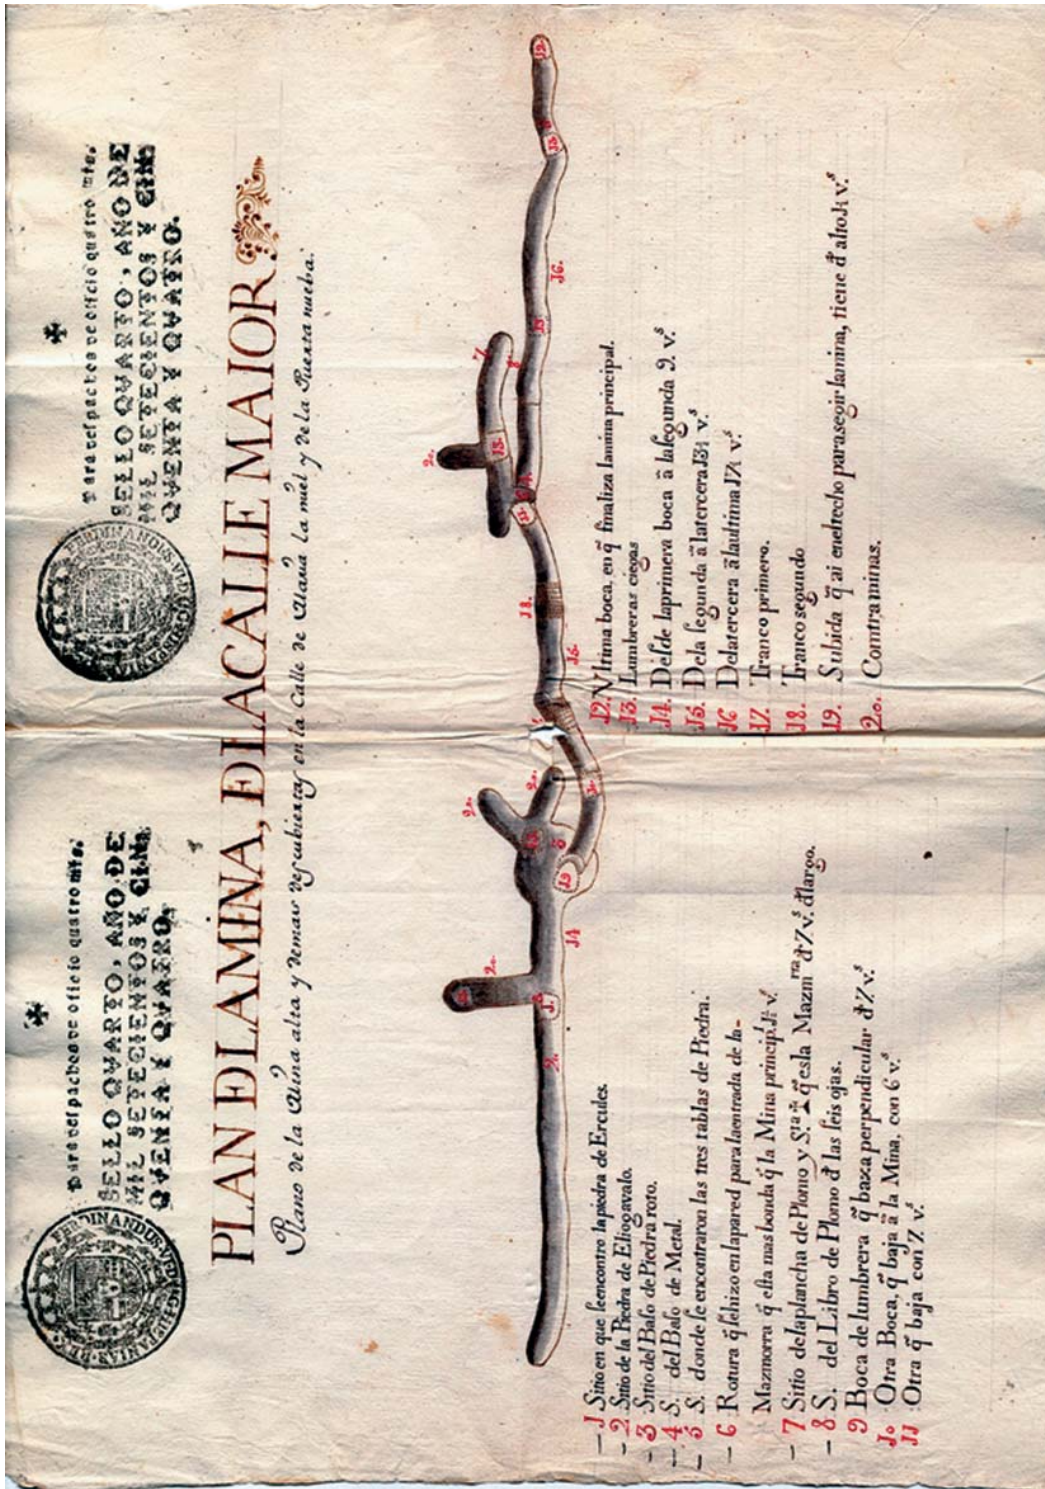 Para despachos de oficio quatro mrs.
SELLO QUARTO, AÑO DE
MIL SETECIENTOS Y CIN-
QUENTA Y QUATRO.
Para despachos de oficio quatro mrs.
SELLO QUARTO, AÑO DE
MIL SETECIENTOS Y CIN-
QUENTA Y QUATRO.
PLAN ĐLAMINA, ĐLACALLE MAIOR
Plano de la Mina alta y demas descubiertas en la Calle de Maria la miel y de la Puerta nueba.
1 Sitio en que se encontro la piedra de Ercules.
2 Sitio de la Piedra de Eliogavalo.
3 Sitio del Baso de Piedra roto.
4 S. del Baso de Metal.
5 S. donde se encontraron las tres tablas de Piedra.
6 Rotura q̃ se hizo en la pared para la entrada de la-
Mazmorra q̃ esta mas honda q̃ la Mina princip.l v.s
7 Sitio de la plancha de Plomo y S.ta q̃ es la Mazm.ra đ 7 v.s đ largo.
8 S. del Libro de Plomo đ las seis ojas.
9 Boca de lumbrera q̃ baxa perpendicular đ 7 v.s
Jo Otra Boca, q̃ baja ā la Mina, con 6 v.s
JJ Otra q̃ baja con 7 v.s
J2. Vltima boca, en q̃ finaliza la mina principal.
J3. Lumbreras ciegas
J4. Desde la primera boca ā la segunda 9. v.s
J5. De la segunda ā la tercera v.s
J6 De la tercera ā la ultima v.s
J7. Tranco primero.
J8. Tranco segundo
J9. Subida q̃ ai en el techo para segir la mina, tiene đ alto v.s
20. Comtra minas.